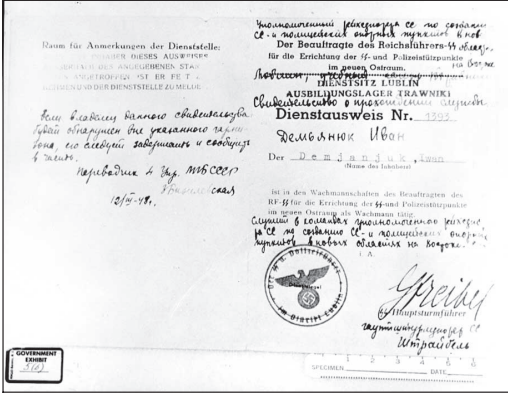 Raum für Anmerkungen der Dienststelle:
DIESES AUSWEISES
ANGEGEBENEN
ANGETROFFEN IST ER
DER DIENSTSTELLE
Если владелец данного свидетельства
будет обнаружен вне указанного гарни-
зона, его следует задержать и сообщить
в часть.
Переводчик 4 Упр. МГБ СССР
12/III-48г.
Уполномоченный рейхсфюрера СС по созданию
СС-и полицейских опорных пунктов в нов
Der Beauftragte des Reichsführers-SS
für die Errichtung der SS- und Polizeistützpunkte
im neuen Ostraum.
DIENSTSITZ LUBLIN
AUSBILDUNGSLAGER TRAWNIKI
Свидетельство о прохождении службы
Dienstausweis Nr. 1393
Демьянюк Иван
Der Demjanjuk, Iwan
(Name des Inhabers)
ist in den Wachmannschaften des Beauftragten des
RF-SS für die Errichtung der SS- und Polizeistützpunkte
im neuen Ostraum als Wachmann tätig.
Служит в командах уполномоченного
СС по созданию СС-и полицейских опорных
пунктов в новых областях на Востоке.
I. A.
Dienstsiegel
Lublin
Streibel
SS Hauptsturmführer
гауптштурмфюрер СС
Штрайбель
GOVERNMENT
EXHIBIT
1 2 3 4 5 6
SPECIMEN DATE